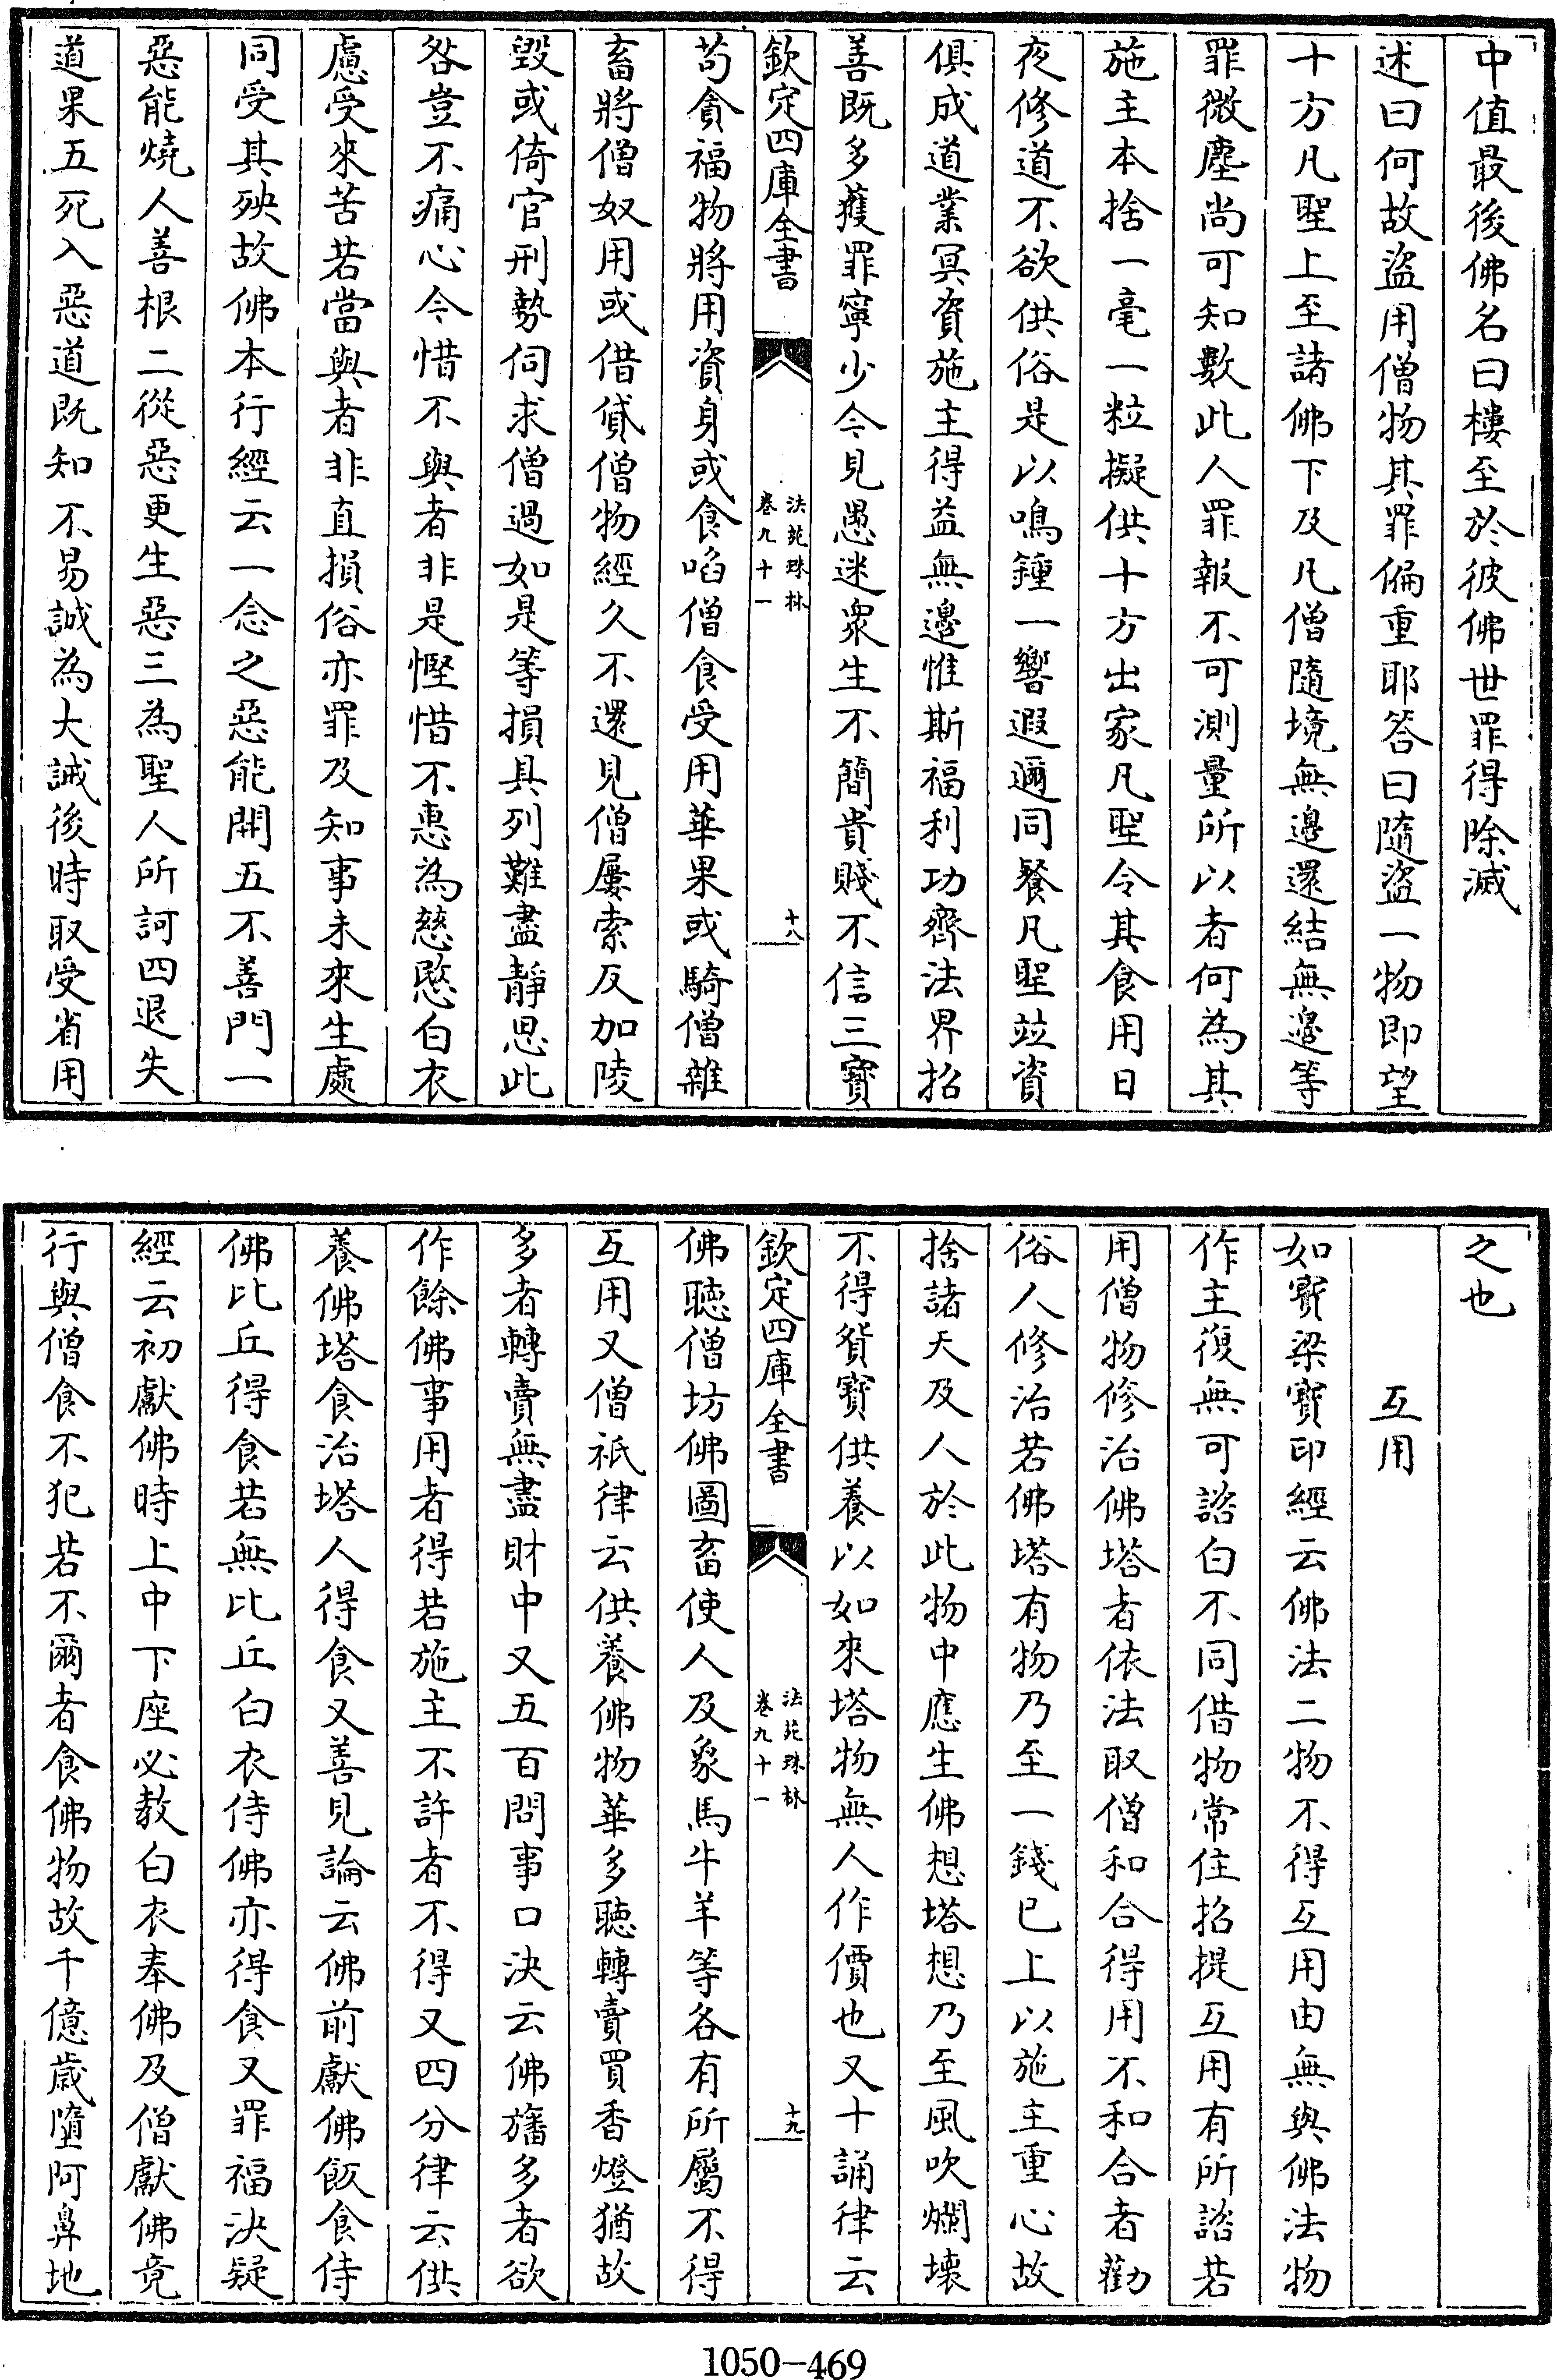 中值最後佛名曰樓至於彼佛世罪得除滅
述曰何故盜用僧物其罪偏重耶答曰隨盜一物即望
十方凡聖上至諸佛下及凡僧隨境無邊還結無邊等
罪微塵尚可知數此人罪報不可測量所以者何為其
施主本捨一毫一粒擬供十方出家凡聖令其食用日
夜修道不欲供俗是以鳴鍾一響遐邇同餐凡聖竝資
俱成道業冥資施主得益無邊惟斯福利功齊法界招
善既多獲罪寧少今見愚迷衆生不簡貴賤不信三寶
欽定四庫全書
法苑珠林
卷九十一
十八
苟貪福物將用資身或食啗僧食受用華果或騎僧雜
畜將僧奴用或借貸僧物經久不還見僧屢索反加陵
毀或倚官刑勢伺求僧過如是等損具列難盡靜思此
咎豈不痛心今惜不與者非是慳惜不惠為慈愍白衣
慮受來苦若當與者非直損俗亦罪及知事未來生處
同受其殃故佛本行經云一念之惡能開五不善門一
惡能燒人善根二從惡更生惡三為聖人所訶四退失
道果五死入惡道既知不易誠為大誡後時取受省用
之也
互用
如寶梁寶印經云佛法二物不得互用由無與佛法物
作主復無可諮白不同借物常住招提互用有所諮若
用僧物修治佛塔者依法取僧和合得用不和合者勸
俗人修治若佛塔有物乃至一錢已上以施主重心故
捨諸天及人於此物中應生佛想塔想乃至風吹爛壞
不得貿寶供養以如來塔物無人作價也又十誦律云
欽定四庫全書
法苑珠林
卷九十一
十九
佛聽僧坊佛圖畜使人及象馬牛羊等各有所屬不得
互用又僧祇律云供養佛物華多聽轉賣買香燈猶故
多者轉賣無盡財中又五百問事口決云佛旛多者欲
作餘佛事用者得若施主不許者不得又四分律云供
養佛塔食治塔人得食又善見論云佛前獻佛飯食侍
佛比丘得食若無比丘白衣侍佛亦得食又罪福決疑
經云初獻佛時上中下座必教白衣奉佛及僧獻佛竟
行與僧食不犯若不爾者食佛物故千億歲墮阿鼻地
1050-469